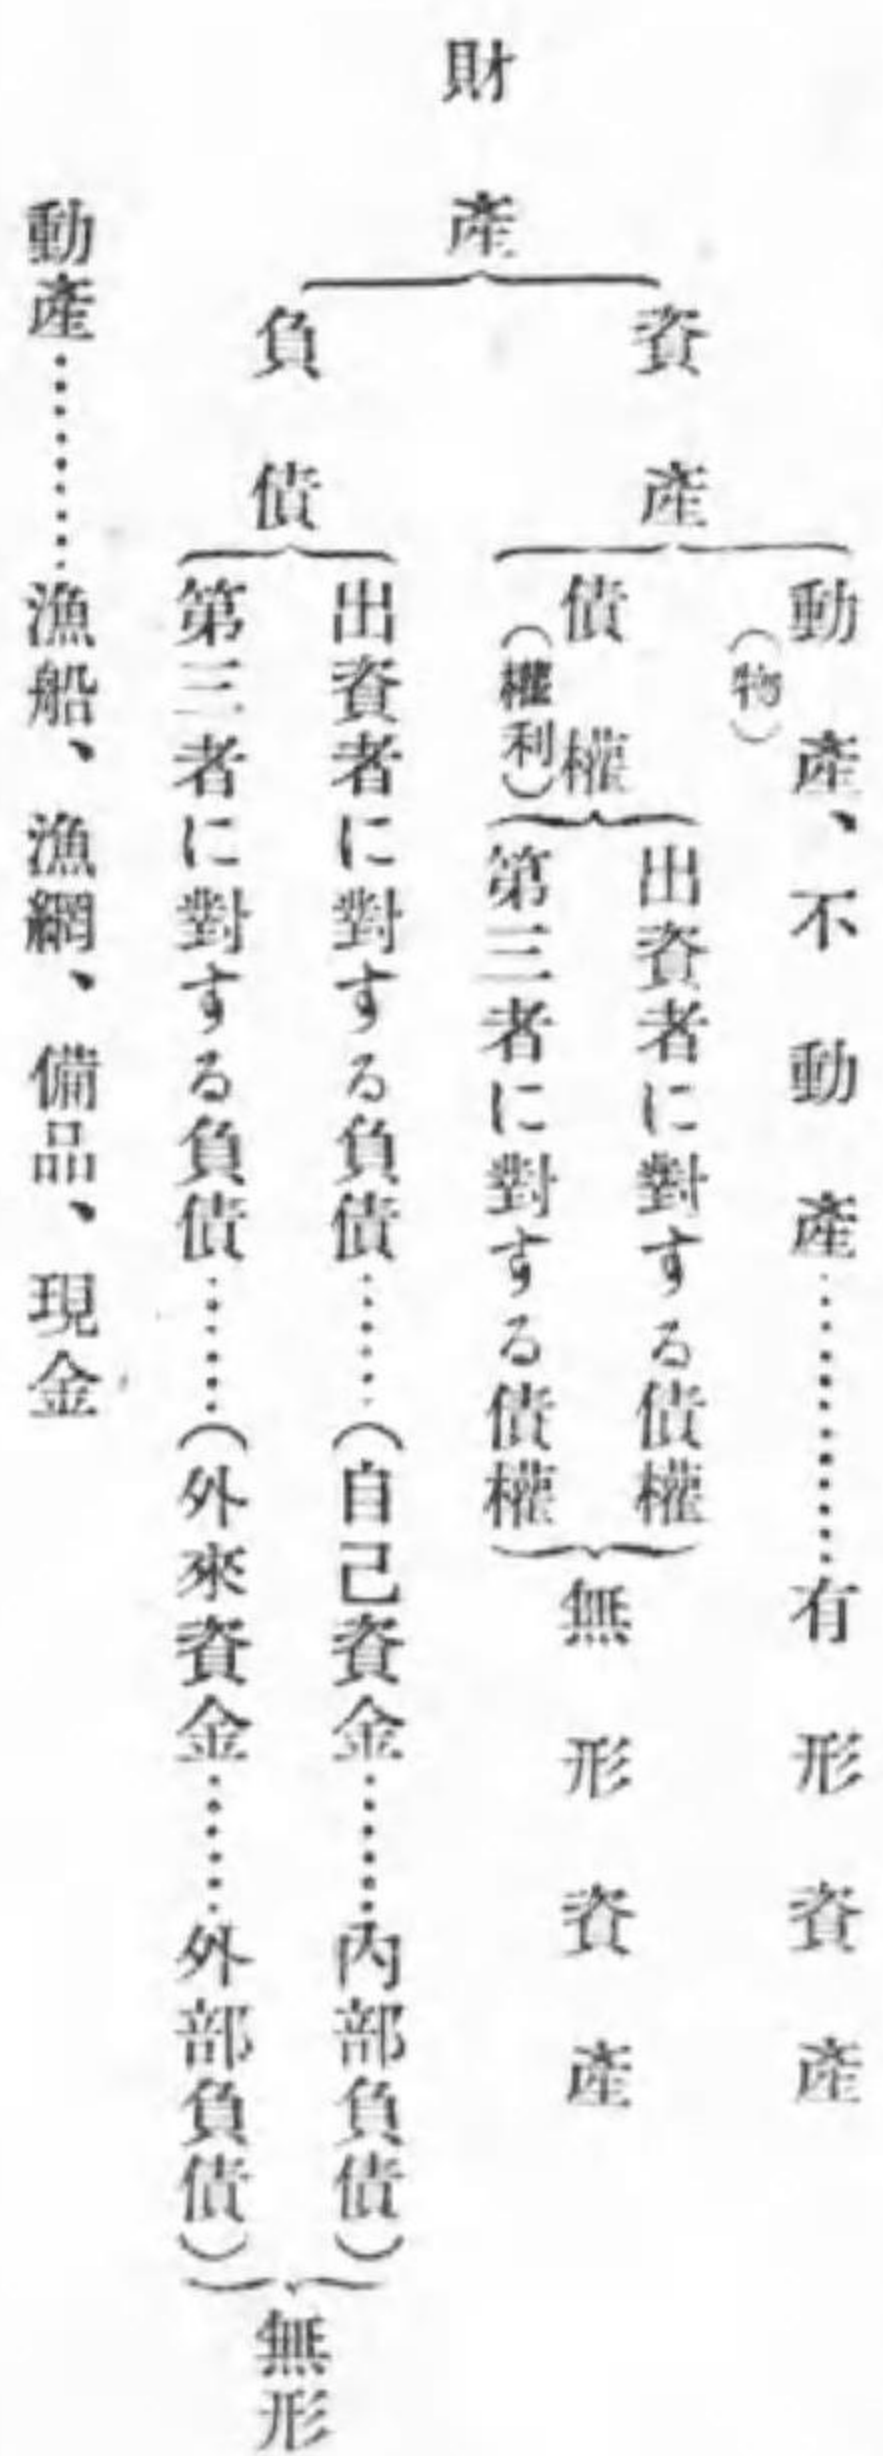 財產
資產
動產、不動產………有形資產
（物）
債權
（權利）
出資者に對する債權
第三者に對する債權
無形資產
負債
出資者に對する負債……（自己資金……內部負債）
第三者に對する負債……（外來資金……外部負債）
無形
動產………漁船、漁網、備品、現金